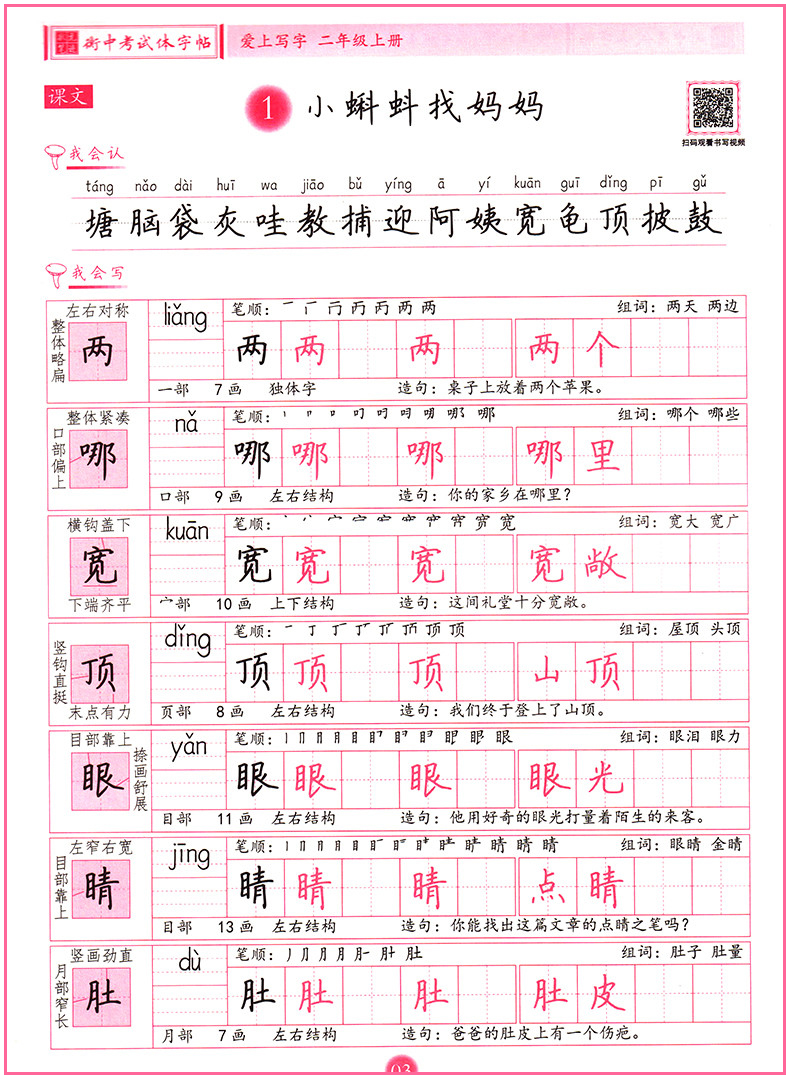 衡中考试体字帖 爱上写字 二年级上册
课文
1 小蝌蚪找妈妈
扫码观看书写视频
我会认
táng nǎo dài huī wa jiāo bǔ yíng ā yí kuān guī dǐng pī gǔ
塘脑袋灰哇教捕迎阿姨宽龟顶披鼓
我会写
左右对称
整体略扁
两
liǎng
笔顺：
组词：两天 两边
两 两 两 两 个
一部 7画 独体字 造句：桌子上放着两个苹果。
整体紧凑
口部偏上
哪
nǎ
笔顺：
组词：哪个 哪些
哪 哪 哪 哪 里
口部 9画 左右结构 造句：你的家乡在哪里？
横钩盖下
宽
下端齐平
kuān
笔顺：
组词：宽大 宽广
宽 宽 宽 宽 敞
宀部 10画 上下结构 造句：这间礼堂十分宽敞。
竖钩直挺
顶
末点有力
dǐng
笔顺：
组词：屋顶 头顶
顶 顶 顶 山 顶
页部 8画 左右结构 造句：我们终于登上了山顶。
目部靠上
眼
捺画舒展
yǎn
笔顺：
组词：眼泪 眼力
眼 眼 眼 眼 光
目部 11画 左右结构 造句：他用好奇的眼光打量着陌生的来客。
左窄右宽
目部靠上
睛
jīng
笔顺：
组词：眼睛 金睛
睛 睛 睛 点 睛
目部 13画 左右结构 造句：你能找出这篇文章的点睛之笔吗？
竖画劲直
月部窄长
肚
dù
笔顺：
组词：肚子 肚量
肚 肚 肚 肚 皮
月部 7画 左右结构 造句：爸爸的肚皮上有一个伤疤。
03